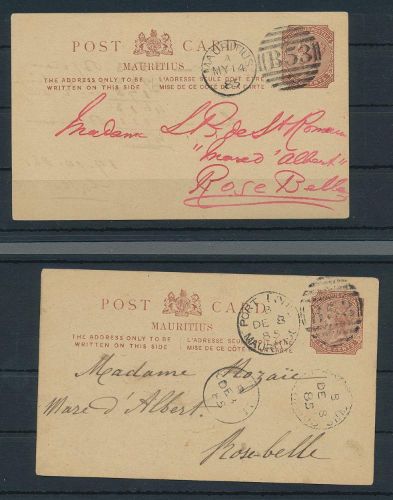 POST CARD
MAURITIUS
THE ADDRESS ONLY TO BE
WRITTEN ON THIS SIDE
L'ADRESSE SEULE DOIT ÊTRE
MISE DE CE CÔTÉ DE LA CARTE
MAURITIUS
A
MY 14
B53
Madame L. B. de St Romain
"Mare d'Albert"
Rose Belle
POST CARD
MAURITIUS
THE ADDRESS ONLY TO BE
WRITTEN ON THIS SIDE
L'ADRESSE SEULE
MISE DE CE CÔTÉ DE LA CARTE
PORT LOUIS
B
DE 8
85
MAURITIUS
B53
Madame Rozaïe
Mare d'Albert
Rose-belle
DE
85
B
DE 8
85